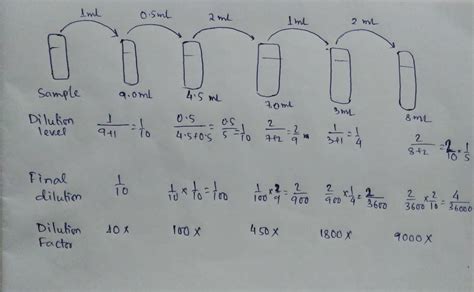 1ml 0.5ml 2ml 1ml 2ml
Sample 9.0ml 4.5ml 7.0ml 3ml 8ml
Dilution level 1/(9+1) = 1/10 0.5/(4.5+0.5) = 0.5/5 = 1/10 2/(7+2) = 2/9 1/(3+1) = 1/4 2/(8+2) = 2/10 = 1/5
Final dilution 1/10 1/10 × 1/10 = 1/100 1/100 × 2/9 = 2/900 2/900 × 1/4 = 2/3600 2/3600 × 2/10 = 4/36000
Dilution Factor 10x 100x 450x 1800x 9000x